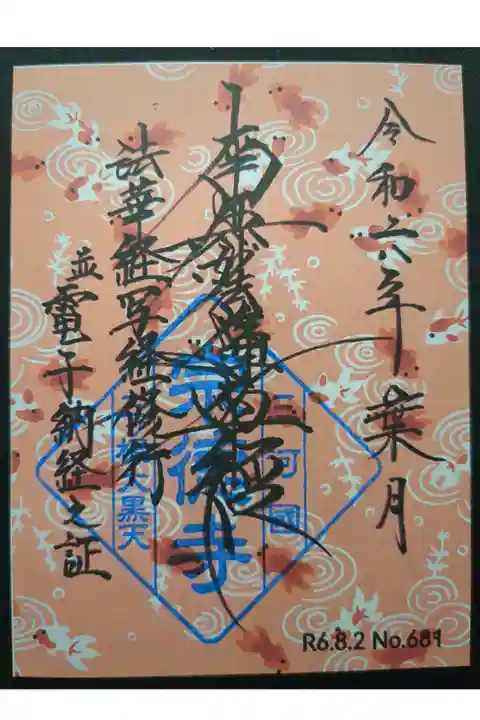 令和六年葉月
南無妙法蓮華経
法華経写経修行
並電子納経之証
三河國
宗徳寺
大黒天
R6.8.2 No.689